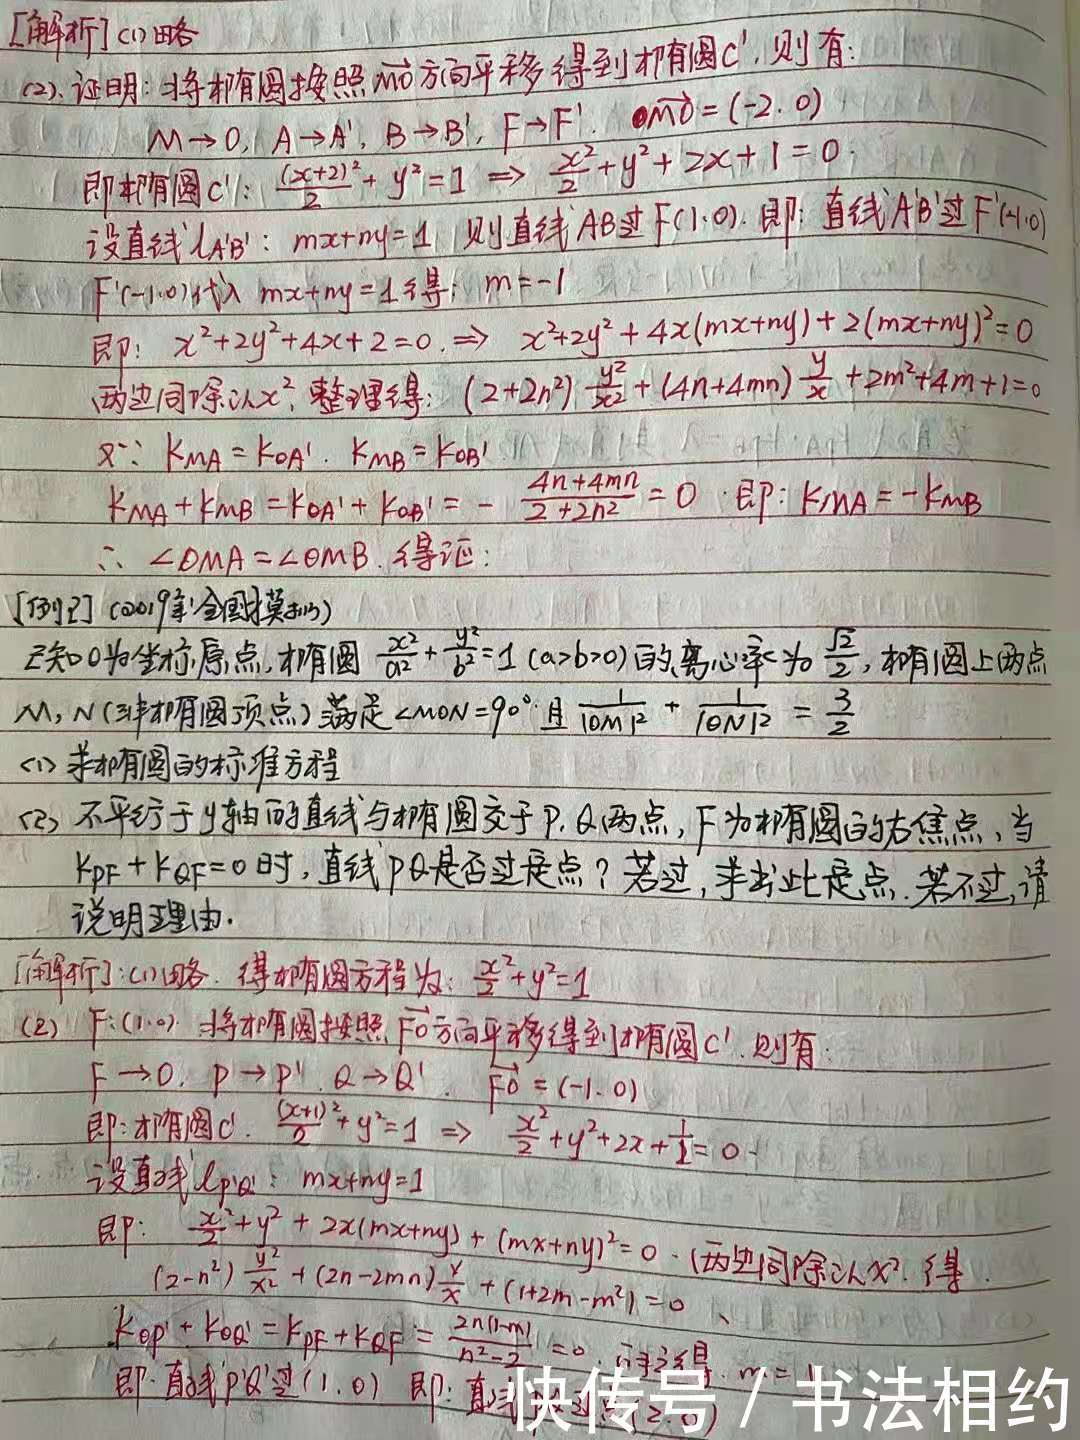 [解析] (1) 略
(2). 证明: 将椭圆按照 MO 方向平移得到椭圆C', 则有:
M→O, A→A', B→B', F→F'. MO=(-2.0)
即椭圆C': (x+2)²/2 + y² = 1 ⇒ x²/2 + y² + 2x + 1 = 0.
设直线 l_A'B': mx+ny=1 则直线AB过F(1.0). 即: 直线A'B'过F'(-1.0)
F'(-1.0)代入 mx+ny=1得: m=-1
即: x²+2y²+4x+2=0. ⇒ x²+2y²+4x(mx+ny)+2(mx+ny)²=0
两边同除以x², 整理得: (2+2n²) y²/x² + (4n+4mn) y/x + 2m²+4m+1=0
又∵ K_MA = K_OA'. K_MB = K_OB'
K_MA + K_MB = K_OA' + K_OB' = - (4n+4mn)/(2+2n²) = 0 即: K_MA = -K_MB
∴ ∠OMA = ∠OMB. 得证:
[例2] (2019年全国模拟)
已知O为坐标原点, 椭圆 x²/a² + y²/b² = 1 (a>b>0) 的离心率为 √2/2, 椭圆上两点
M, N (非椭圆顶点) 满足 ∠MON=90° 且 1/|OM|² + 1/|ON|² = 3/2
(1) 求椭圆的标准方程
(2) 不平行于y轴的直线与椭圆交于P, Q两点, F为椭圆的右焦点, 当
K_PF + K_QF = 0 时, 直线PQ是否过定点? 若过, 求出此定点. 若不过, 请
说明理由.
[解析]: (1) 略. 得椭圆方程为: x²/2 + y² = 1
(2) F:(1.0). 将椭圆按照 FO 方向平移得到椭圆C'. 则有:
F→O. P→P'. Q→Q'. FO=(-1.0)
即: 椭圆C'. (x+1)²/2 + y² = 1 ⇒ x²/2 + y² + 2x + 1/2 = 0
设直线 l_P'Q': mx+ny=1
即: x²/2 + y² + 2x(mx+ny) + (mx+ny)² = 0. (两边同除以x². 得
(2-n²) y²/x² + (2n-2mn) y/x + (1+2m-m²) = 0
K_OP' + K_OQ' = K_PF + K_QF = 2n(1-m)/(n²-2) = 0 m=1
即: 直线P'Q'过(1.0) 即: 直线 (2.0)
快传号 / 书法相约